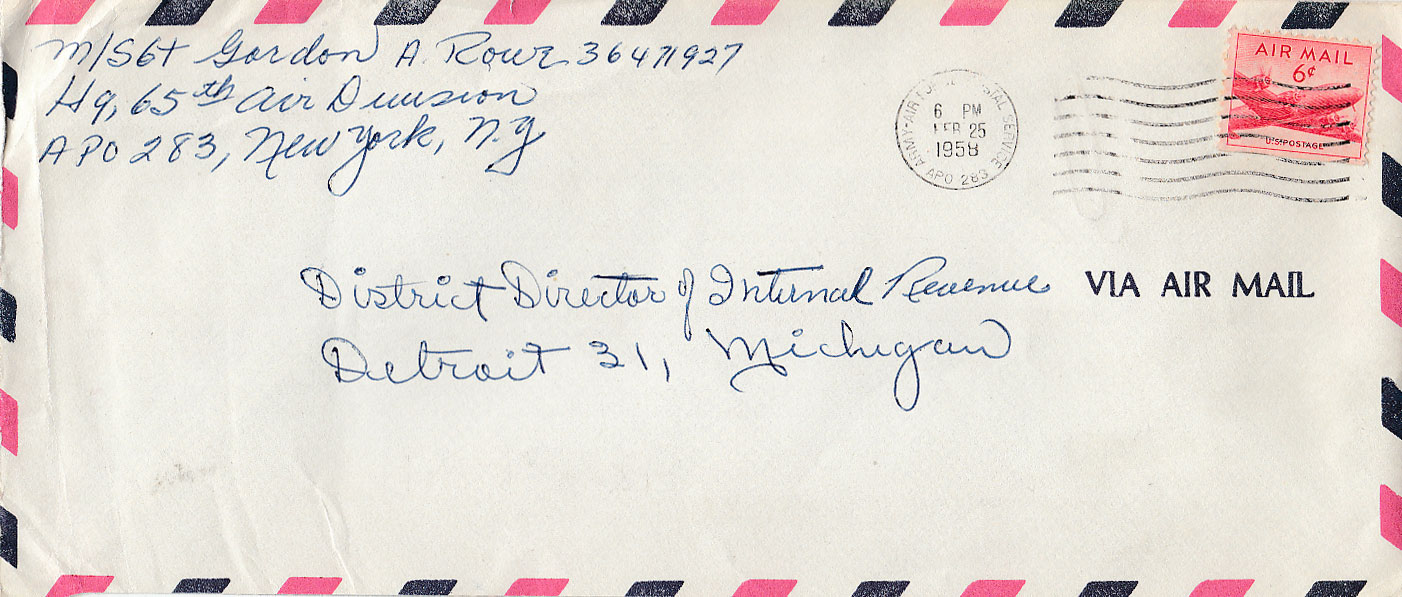 M/Sgt Gordon A. Rowe 36471927
Hq, 65th Air Division
APO 283, New York, N.Y
ARMY-AIR FORCE POSTAL SERVICE
6 PM
FEB 25
1958
APO 283
AIR MAIL
6¢
U.S. POSTAGE
District Director of Internal Revenue
VIA AIR MAIL
Detroit 31, Michigan